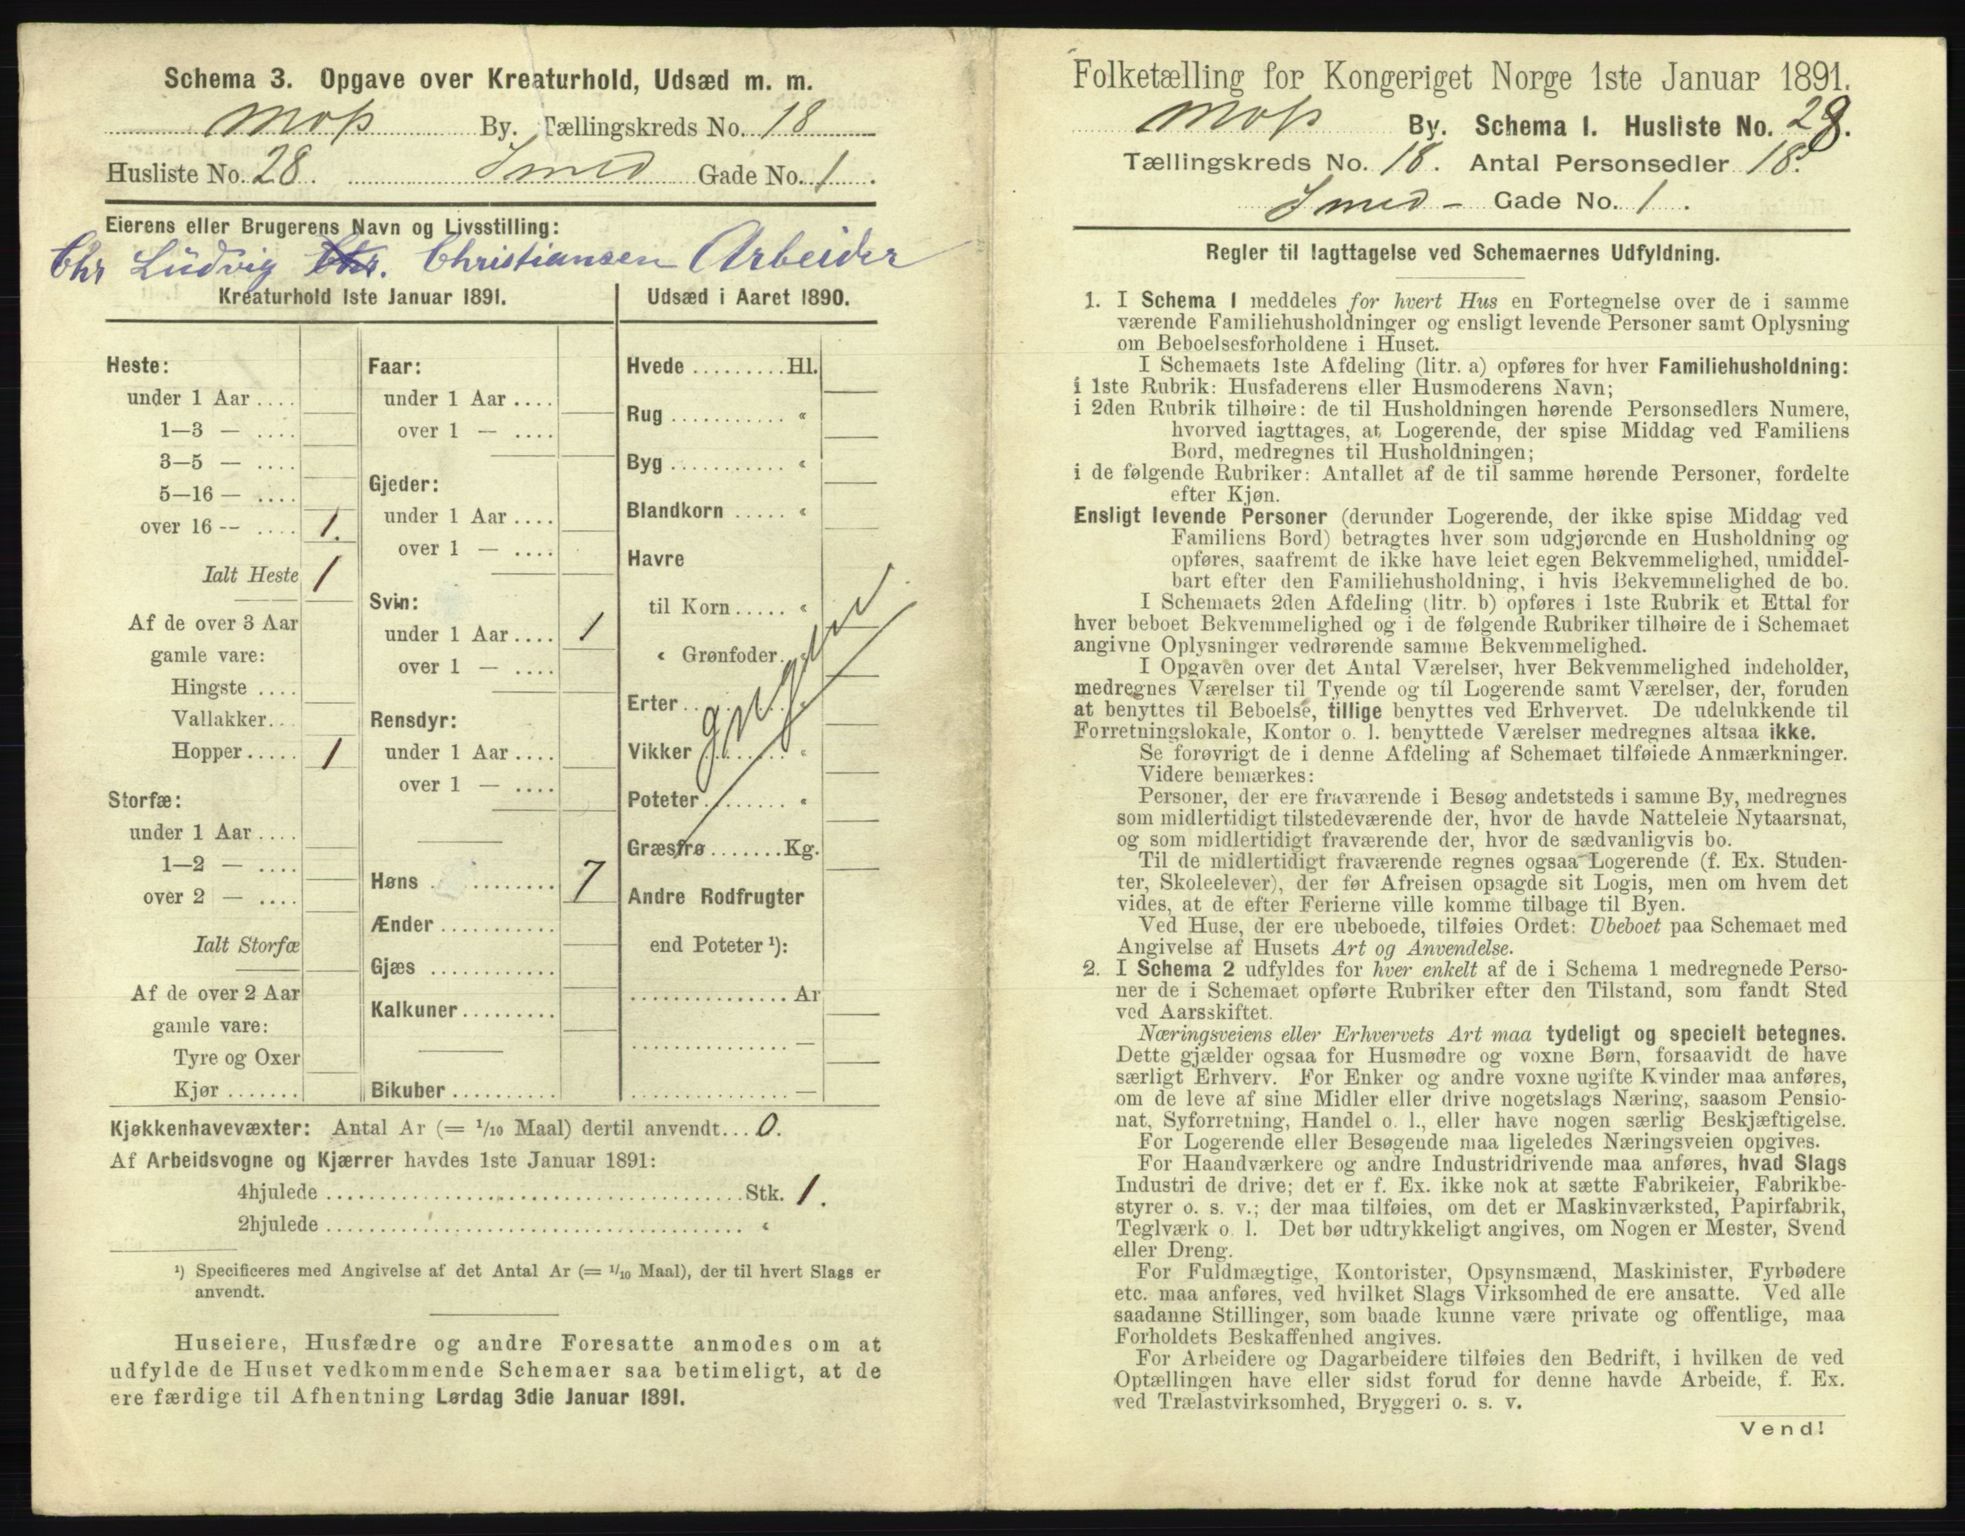 Schema 3. Opgave over Kreaturhold, Udsæd m. m.
Moss By. Tællingskreds No. 18
Husliste No. 28. Smed Gade No. 1.
Eierens eller Brugerens Navn og Livsstilling:
Chr Ludvig Chr. Christiansen Arbeider
Kreaturhold 1ste Januar 1891.
Heste:
under 1 Aar ....
1—3 — ....
3—5 — ....
5—16 — ....
over 16 -- .... 1.
Ialt Heste 1
Af de over 3 Aar
gamle vare:
Hingste ....
Vallakker...
Hopper ..... 1
Storfæ:
under 1 Aar ....
1—2 — ....
over 2 — ....
Ialt Storfæ
Af de over 2 Aar
gamle vare:
Tyre og Oxer
Kjør .......
Faar:
under 1 Aar ....
over 1 — ....
Gjeder:
under 1 Aar ....
over 1 — ....
Svin:
under 1 Aar .... 1
over 1 — ....
Rensdyr:
under 1 Aar ....
over 1 — ....
Høns ........... 7
Ænder ...........
Gjæs ............
Kalkuner.........
Bikuber ..........
Udsæd i Aaret 1890.
Hvede ......... Hl.
Rug ........... «
Byg ........... «
Blandkorn ..... «
Havre
til Korn ..... «
« Grønfoder.. «
Erter .......... «
Vikker ........ «
Poteter........ «
Græsfrø ....... Kg.
Andre Rodfrugter
end Poteter ¹):
............... Ar
............... —
............... —
Kjøkkenhavevæxter: Antal Ar (= 1/10 Maal) dertil anvendt... 0.
Af Arbeidsvogne og Kjærrer havdes 1ste Januar 1891:
4hjulede ........................................ Stk. 1.
2hjulede ........................................ «
¹) Specificeres med Angivelse af det Antal Ar (= 1/10 Maal), der til hvert Slags er
anvendt.
Huseiere, Husfædre og andre Foresatte anmodes om at
udfylde de Huset vedkommende Schemaer saa betimeligt, at de
ere færdige til Afhentning Lørdag 3die Januar 1891.
Folketælling for Kongeriget Norge 1ste Januar 1891.
Moss By. Schema I. Husliste No. 28.
Tællingskreds No. 18. Antal Personsedler 18.
Smed- Gade No. 1.
Regler til Iagttagelse ved Schemaernes Udfyldning.
1. I Schema I meddeles for hvert Hus en Fortegnelse over de i samme
værende Familiehusholdninger og ensligt levende Personer samt Oplysning
om Beboelsesforholdene i Huset.
I Schemaets 1ste Afdeling (litr. a) opføres for hver Familiehusholdning:
i 1ste Rubrik: Husfaderens eller Husmoderens Navn;
i 2den Rubrik tilhøire: de til Husholdningen hørende Personsedlers Numere,
hvorved iagttages, at Logerende, der spise Middag ved Familiens
Bord, medregnes til Husholdningen;
i de følgende Rubriker: Antallet af de til samme hørende Personer, fordelte
efter Kjøn.
Ensligt levende Personer (derunder Logerende, der ikke spise Middag ved
Familiens Bord) betragtes hver som udgjørende en Husholdning og
opføres, saafremt de ikke have leiet egen Bekvemmelighed, umiddel-
bart efter den Familiehusholdning, i hvis Bekvemmelighed de bo.
I Schemaets 2den Afdeling (litr. b) opføres i 1ste Rubrik et Ettal for
hver beboet Bekvemmelighed og i de følgende Rubriker tilhøire de i Schemaet
angivne Oplysninger vedrørende samme Bekvemmelighed.
I Opgaven over det Antal Værelser, hver Bekvemmelighed indeholder,
medregnes Værelser til Tyende og til Logerende samt Værelser, der, foruden
at benyttes til Beboelse, tillige benyttes ved Erhvervet. De udelukkende til
Forretningslokale, Kontor o. l. benyttede Værelser medregnes altsaa ikke.
Se forøvrigt de i denne Afdeling af Schemaet tilføiede Anmærkninger.
Videre bemærkes:
Personer, der ere fraværende i Besøg andetsteds i samme By, medregnes
som midlertidigt tilstedeværende der, hvor de havde Natteleie Nytaarsnat,
og som midlertidigt fraværende der, hvor de sædvanligvis bo.
Til de midlertidigt fraværende regnes ogsaa Logerende (f. Ex. Studen-
ter, Skoleelever), der før Afreisen opsagde sit Logis, men om hvem det
vides, at de efter Ferierne ville komme tilbage til Byen.
Ved Huse, der ere ubeboede, tilføies Ordet: Ubeboet paa Schemaet med
Angivelse af Husets Art og Anvendelse.
2. I Schema 2 udfyldes for hver enkelt af de i Schema 1 medregnede Perso-
ner de i Schemaet opførte Rubriker efter den Tilstand, som fandt Sted
ved Aarsskiftet.
Næringsveiens eller Erhvervets Art maa tydeligt og specielt betegnes.
Dette gjælder ogsaa for Husmødre og voxne Børn, forsaavidt de have
særligt Erhverv. For Enker og andre voxne ugifte Kvinder maa anføres,
om de leve af sine Midler eller drive nogetslags Næring, saasom Pensio-
nat, Syforretning, Handel o. l., eller have nogen særlig Beskjæftigelse.
For Logerende eller Besøgende maa ligeledes Næringsveien opgives.
For Haandværkere og andre Industridrivende maa anføres, hvad Slags
Industri de drive; det er f. Ex. ikke nok at sætte Fabrikeier, Fabrikbe-
styrer o. s. v.; der maa tilføies, om det er Maskinværksted, Papirfabrik,
Teglværk o. l. Det bør udtrykkeligt angives, om Nogen er Mester, Svend
eller Dreng.
For Fuldmægtige, Kontorister, Opsynsmænd, Maskinister, Fyrbødere
etc. maa anføres, ved hvilket Slags Virksomhed de ere ansatte. Ved alle
saadanne Stillinger, som baade kunne være private og offentlige, maa
Forholdets Beskaffenhed angives.
For Arbeidere og Dagarbeidere tilføies den Bedrift, i hvilken de ved
Optællingen have eller sidst forud for denne havde Arbeide, f. Ex.
ved Trælastvirksomhed, Bryggeri o. s. v.
Vend!